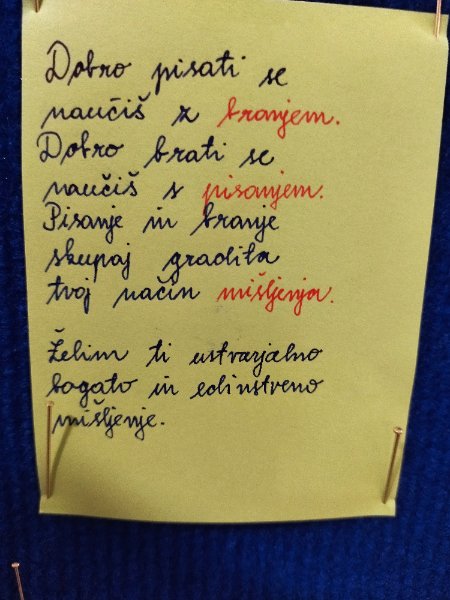 Dobro pisati se
naučiš z branjem.
Dobro brati se
naučiš s pisanjem.
Pisanje in branje
skupaj gradita
tvoj način mišljenja.
Želim ti ustvarjalno
bogato in edinstveno
mišljenje.